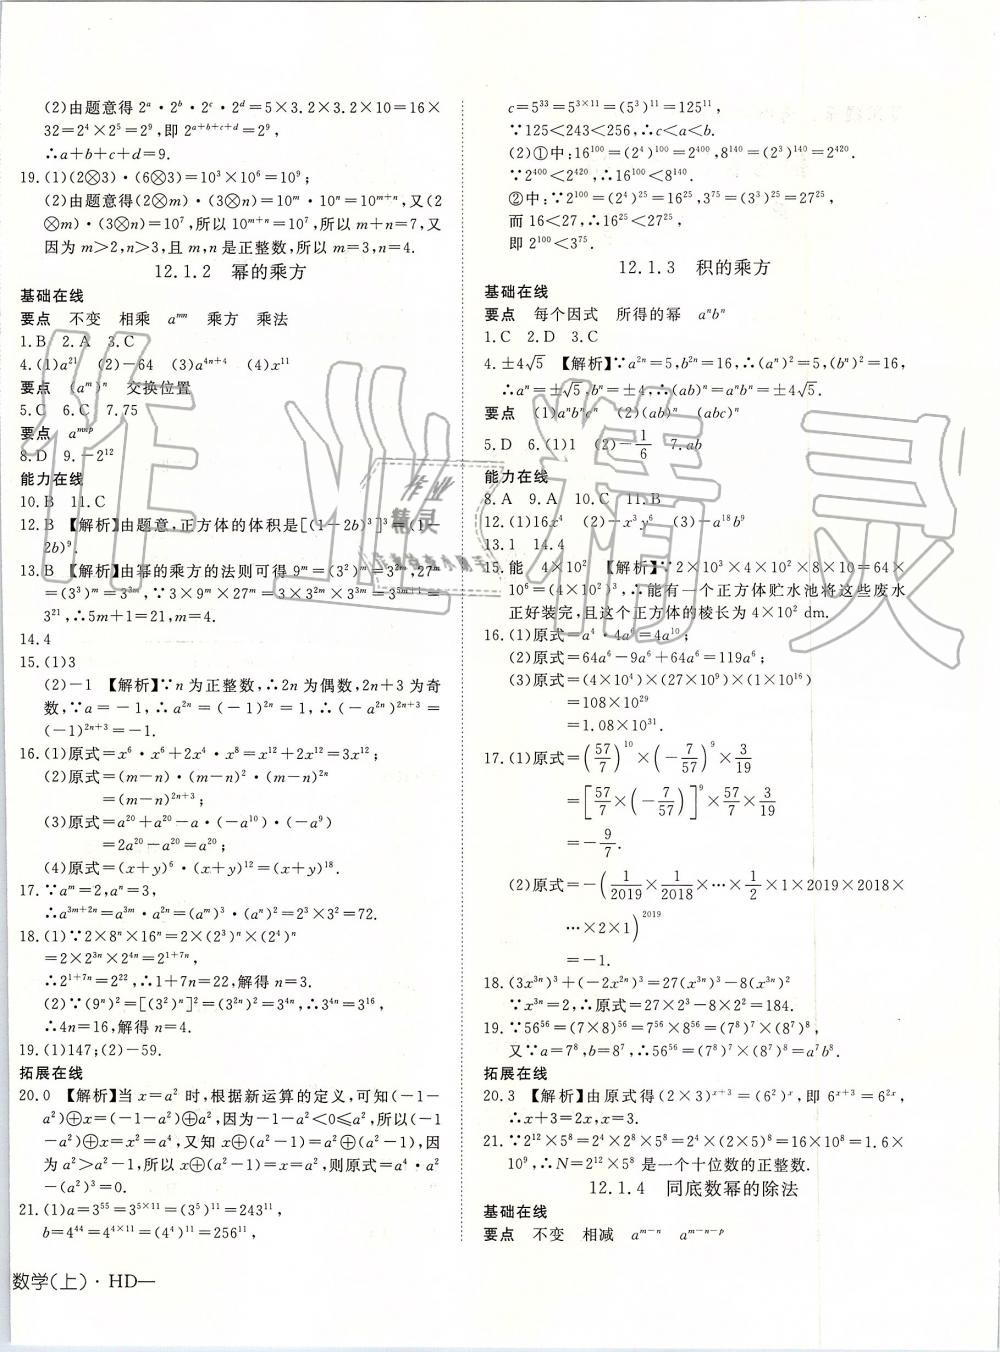 (2)由题意得 2ᵃ·2ᵇ·2ᶜ·2ᵈ=5×3.2×3.2×10=16×
32=2⁴×2⁵=2⁹,即 2ᵃ⁺ᵇ⁺ᶜ⁺ᵈ=2⁹,
∴a+b+c+d=9.
19.(1)(2⊗3)·(6⊗3)=10³×10⁶=10⁹;
(2)由题意得(2⊗m)·(3⊗n)=10ᵐ·10ⁿ=10ᵐ⁺ⁿ,又(2
⊗m)·(3⊗n)=10⁷,所以 10ᵐ⁺ⁿ=10⁷,所以 m+n=7,又
因为 m>2,n>3,且 m,n 是正整数,所以 m=3,n=4.
12.1.2 幂的乘方
基础在线
要点 不变 相乘 aᵐⁿ 乘方 乘法
1.B 2.A 3.C
4.(1)a²¹ (2)-64 (3)a⁴ⁿ⁺⁴ (4)x¹¹
要点 (aᵐ)ⁿ 交换位置
5.C 6.C 7.75
要点 aᵐⁿᵖ
8.D 9.-2¹²
能力在线
10.B 11.C
12.B 【解析】由题意,正方体的体积是[(1-2b)³]³=(1-
2b)⁹.
13.B 【解析】由幂的乘方的法则可得 9ᵐ=(3²)ᵐ=3²ᵐ,27ᵐ
=(3³)ᵐ=3³ᵐ,∵3×9ᵐ×27ᵐ=3×3²ᵐ×3³ᵐ=3⁵ᵐ⁺¹=
3²¹,∴5m+1=21,m=4.
14.4
15.(1)3
(2)-1 【解析】∵n 为正整数,∴2n 为偶数,2n+3 为奇
数,∵a=-1,∴a²ⁿ=(-1)²ⁿ=1,∴(-a²ⁿ)²ⁿ⁺³=
(-1)²ⁿ⁺³=-1.
16.(1)原式=x⁶·x⁶+2x⁴·x⁸=x¹²+2x¹²=3x¹²;
(2)原式=(m-n)·(m-n)²·(m-n)²ⁿ
=(m-n)²ⁿ⁺³;
(3)原式=a²⁰+a²⁰-a·(-a¹⁰)·(-a⁹)
=2a²⁰-a²⁰=a²⁰;
(4)原式=(x+y)⁶·(x+y)¹²=(x+y)¹⁸.
17.∵aᵐ=2,aⁿ=3,
∴a³ᵐ⁺²ⁿ=a³ᵐ·a²ⁿ=(aᵐ)³·(aⁿ)²=2³×3²=72.
18.(1)∵2×8ⁿ×16ⁿ=2×(2³)ⁿ×(2⁴)ⁿ
=2×2³ⁿ×2⁴ⁿ=2¹⁺⁷ⁿ,
∴2¹⁺⁷ⁿ=2²²,∴1+7n=22,解得 n=3.
(2)∵(9ⁿ)²=[(3²)ⁿ]²=(3²ⁿ)²=3⁴ⁿ,∴3⁴ⁿ=3¹⁶,
∴4n=16,解得 n=4.
19.(1)147;(2)-59.
拓展在线
20.0 【解析】当 x=a² 时,根据新运算的定义,可知(-1-
a²)⊕x=(-1-a²)⊕a²,因为-1-a²<0≤a²,所以(-1
-a²)⊕x=x²=a⁴,又知 x⊕(a²-1)=a²⊕(a²-1),因
为 a²>a²-1,所以 x⊕(a²-1)=x=a²,则原式=a⁴·a²
-(a²)³=0.
21.(1)a=3⁵⁵=3⁵ˣ¹¹=(3⁵)¹¹=243¹¹,
b=4⁴⁴=4⁴ˣ¹¹=(4⁴)¹¹=256¹¹,
c=5³³=5³ˣ¹¹=(5³)¹¹=125¹¹,
∵125<243<256,∴c<a<b.
(2)①中:16¹⁰⁰=(2⁴)¹⁰⁰=2⁴⁰⁰,8¹⁴⁰=(2³)¹⁴⁰=2⁴²⁰.
∵2⁴⁰⁰<2⁴²⁰,∴16¹⁰⁰<8¹⁴⁰.
②中:∵2¹⁰⁰=(2⁴)²⁵=16²⁵,3⁷⁵=(3³)²⁵=27²⁵,
而 16<27,∴16²⁵<27²⁵,
即 2¹⁰⁰<3⁷⁵.
12.1.3 积的乘方
基础在线
要点 每个因式 所得的幂 aⁿbⁿ
1.C 2.D 3.C
4.±4√5 【解析】∵a²ⁿ=5,b²ⁿ=16,∴(aⁿ)²=5,(bⁿ)²=16,
∴aⁿ=±√5,bⁿ=±4,∴(ab)ⁿ=aⁿbⁿ=±4√5.
要点 (1)aⁿbⁿcⁿ (2)(ab)ⁿ (abc)ⁿ
5.D 6.(1)1 (2)-1/6 7.ab
能力在线
8.A 9.A 10.C 11.B
12.(1)16x⁴ (2)-x³y⁶ (3)-a¹⁸b⁹
13.1 14.4
15.能 4×10² 【解析】∵2×10³×4×10²×8×10=64×
10⁶=(4×10²)³,∴能有一个正方体贮水池将这些废水
正好装完,且这个正方体的棱长为 4×10² dm.
16.(1)原式=a⁴·4a⁶=4a¹⁰;
(2)原式=64a⁶-9a⁶+64a⁶=119a⁶;
(3)原式=(4×10⁴)×(27×10⁹)×(1×10¹⁶)
=108×10²⁹
=1.08×10³¹.
17.(1)原式=(57/7)¹⁰×(-7/57)⁹×3/19
=[57/7×(-7/57)]⁹×57/7×3/19
=-9/7.
(2)原式=-(1/2019×1/2018×…×1/2×1×2019×2018×
…×2×1)²⁰¹⁹
=-1.
18.(3x³ⁿ)³+(-2x²ⁿ)³=27(x³ⁿ)³-8(x³ⁿ)²
∵x³ⁿ=2,∴原式=27×2³-8×2²=184.
19.∵56⁵⁶=(7×8)⁵⁶=7⁵⁶×8⁵⁶=(7⁸)⁷×(8⁷)⁸,
又∵a=7⁸,b=8⁷,∴56⁵⁶=(7⁸)⁷×(8⁷)⁸=a⁷b⁸.
拓展在线
20.3 【解析】由原式得(2×3)ˣ⁺³=(6²)ˣ,即 6ˣ⁺³=6²ˣ,
∴x+3=2x,x=3.
21.∵2¹²×5⁸=2⁴×2⁸×5⁸=2⁴×(2×5)⁸=16×10⁸=1.6×
10⁹,∴N=2¹²×5⁸ 是一个十位数的正整数.
12.1.4 同底数幂的除法
基础在线
要点 不变 相减 aᵐ⁻ⁿ aᵐ⁻ⁿ⁻ᵖ
数学(上)·HD—
作业精灵
作业
精灵